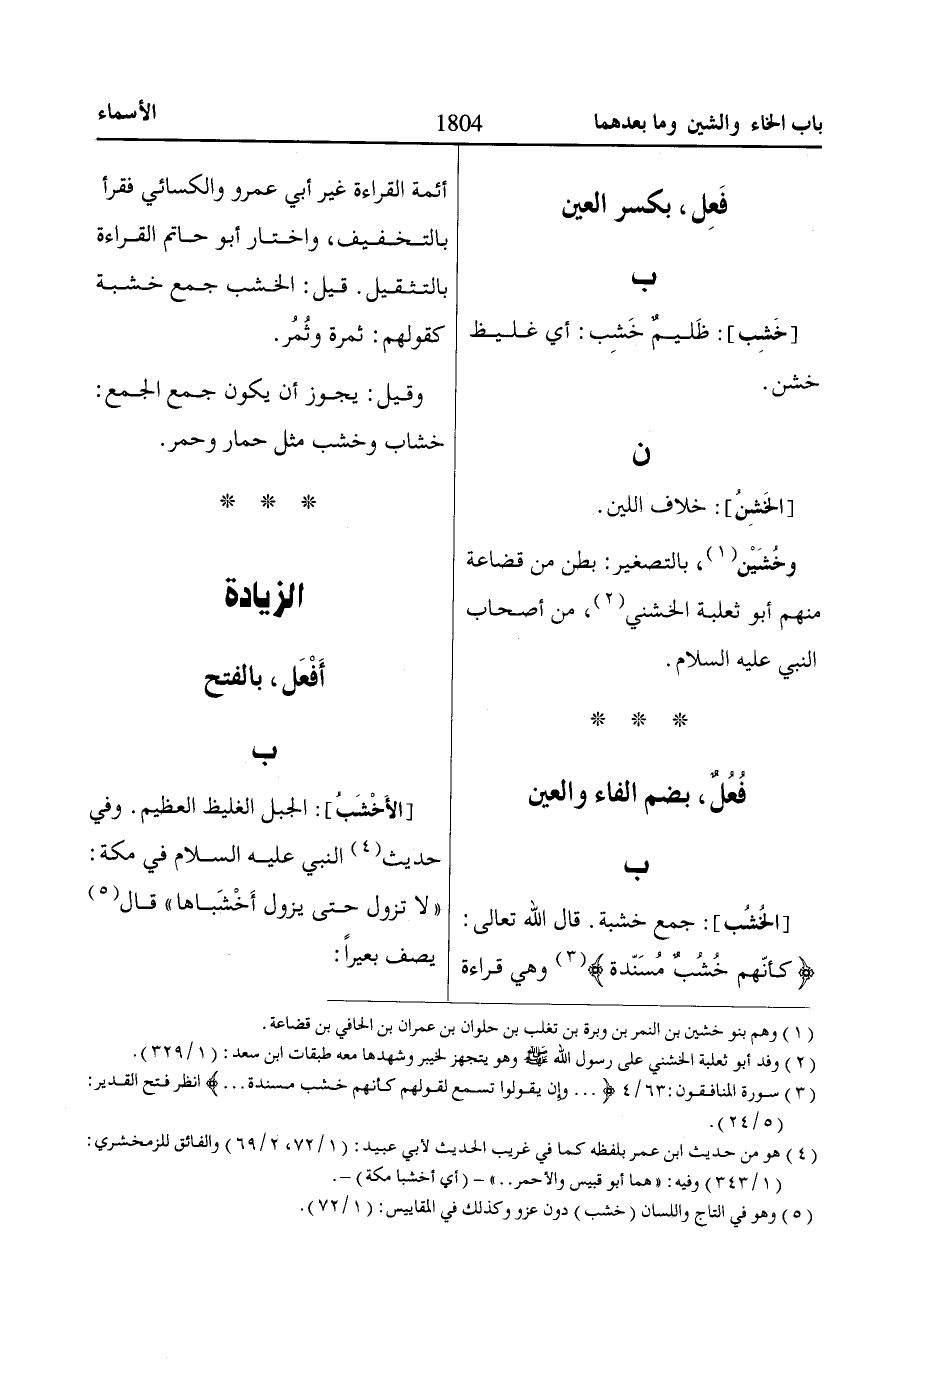 باب الخاء والشين وما بعدهما
1804
الأسماء
فَعِل، بكسر العين
ب
[خَشِب]: ظَليـمٌ خَشِب: أي غـليـظ
خشن.
ن
[الخَشِنُ]: خلاف اللين.
وخُشَيْن(١)، بالتصغير: بطن من قضاعة
منهم أبو ثعلبة الخشني(٢)، من أصحاب
النبي عليه السلام.
* * *
فُعُلٌ، بضم الفاء والعين
ب
[الخُشُب]: جمع خشبة. قال الله تعالى:
﴿كـأنّهم خُشُبٌ مُسَنّدة﴾(٣) وهي قراءة
أئمة القراءة غير أبي عمرو والكسائي فقرأ
بالتـخـفـيـف، واختـار أبو حـاتم القـراءة
بالتثـقـيل. قـيل: الخـشب جـمع خـشـبـة
كقولهم: ثمرة وثُمُر.
وقـيل: يـجـوز أن يكون جـمع الجمع:
خشاب وخشب مثل حمار وحمر.
* * *
الزيادة
أَفْعَل، بالفتح
ب
[الأَخْشَبُ]: الجبل الغليظ العظيم. وفي
حديث(٤) النبي عليـه السـلام في مكة:
«لا تزول حـتـى يزول أَخْشَبـاها» قـال(٥)
يصف بعيراً:
(١) وهم بنو خشين بن النمر بن وبرة بن تغلب بن حلوان بن عمران بن الحافي بن قضاعة.
(٢) وفد أبو ثعلبة الخشني على رسول الله ﷺ وهو يتجهز لخيبر وشهدها معه طبقات ابن سعد: (٣٢٩/١).
(٣) سورة المنافقون: ٤/٦٣ ﴿... وإن يقولوا تسمع لقولهم كأنهم خشب مسندة...﴾ انظر فتح القدير:
(٢٤/٥).
(٤) هو من حديث ابن عمر بلفظه كما في غريب الحديث لأبي عبيد: (٧٢/١، ٦٩/٢) والفائق للزمخشري:
(٣٤٣/١) وفيه: «هما أبو قبيس والأحمر..» - (أي أخشبا مكة) -.
(٥) وهو في التاج واللسان (خشب) دون عزو وكذلك في المقاييس: (٧٢/١).